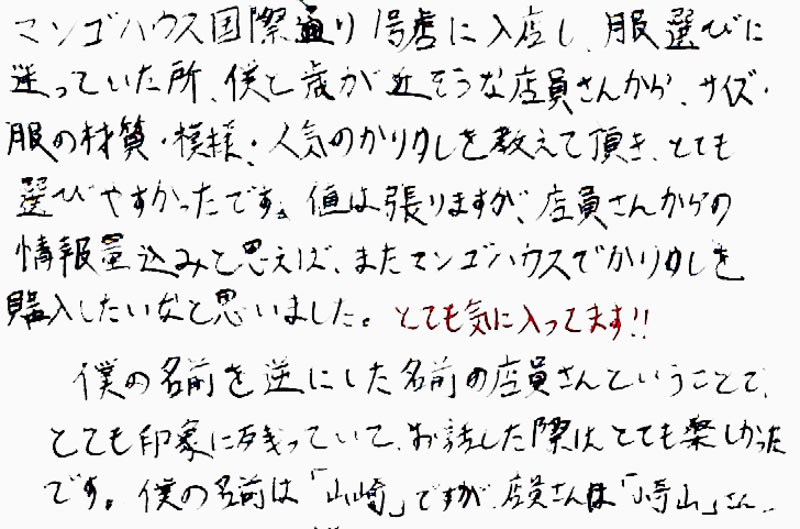 マンゴハウス国際通り1号店に入店し、服選びに
迷っていた所、僕と歳が近そうな店員さんから、サイズ・
服の材質・模様・人気のかりゆしを教えて頂き、とても
選びやすかったです。値は張りますが、店員さんからの
情報量込みと思えば、またマンゴハウスでかりゆしを
購入したいなと思いました。とても気に入ってます!!
僕の名前を逆にした名前の店員さんということで、
とても印象に残っていて、お話した際はとても楽しかった
です。僕の名前は「山崎」ですが、店員さんは「崎山」さん